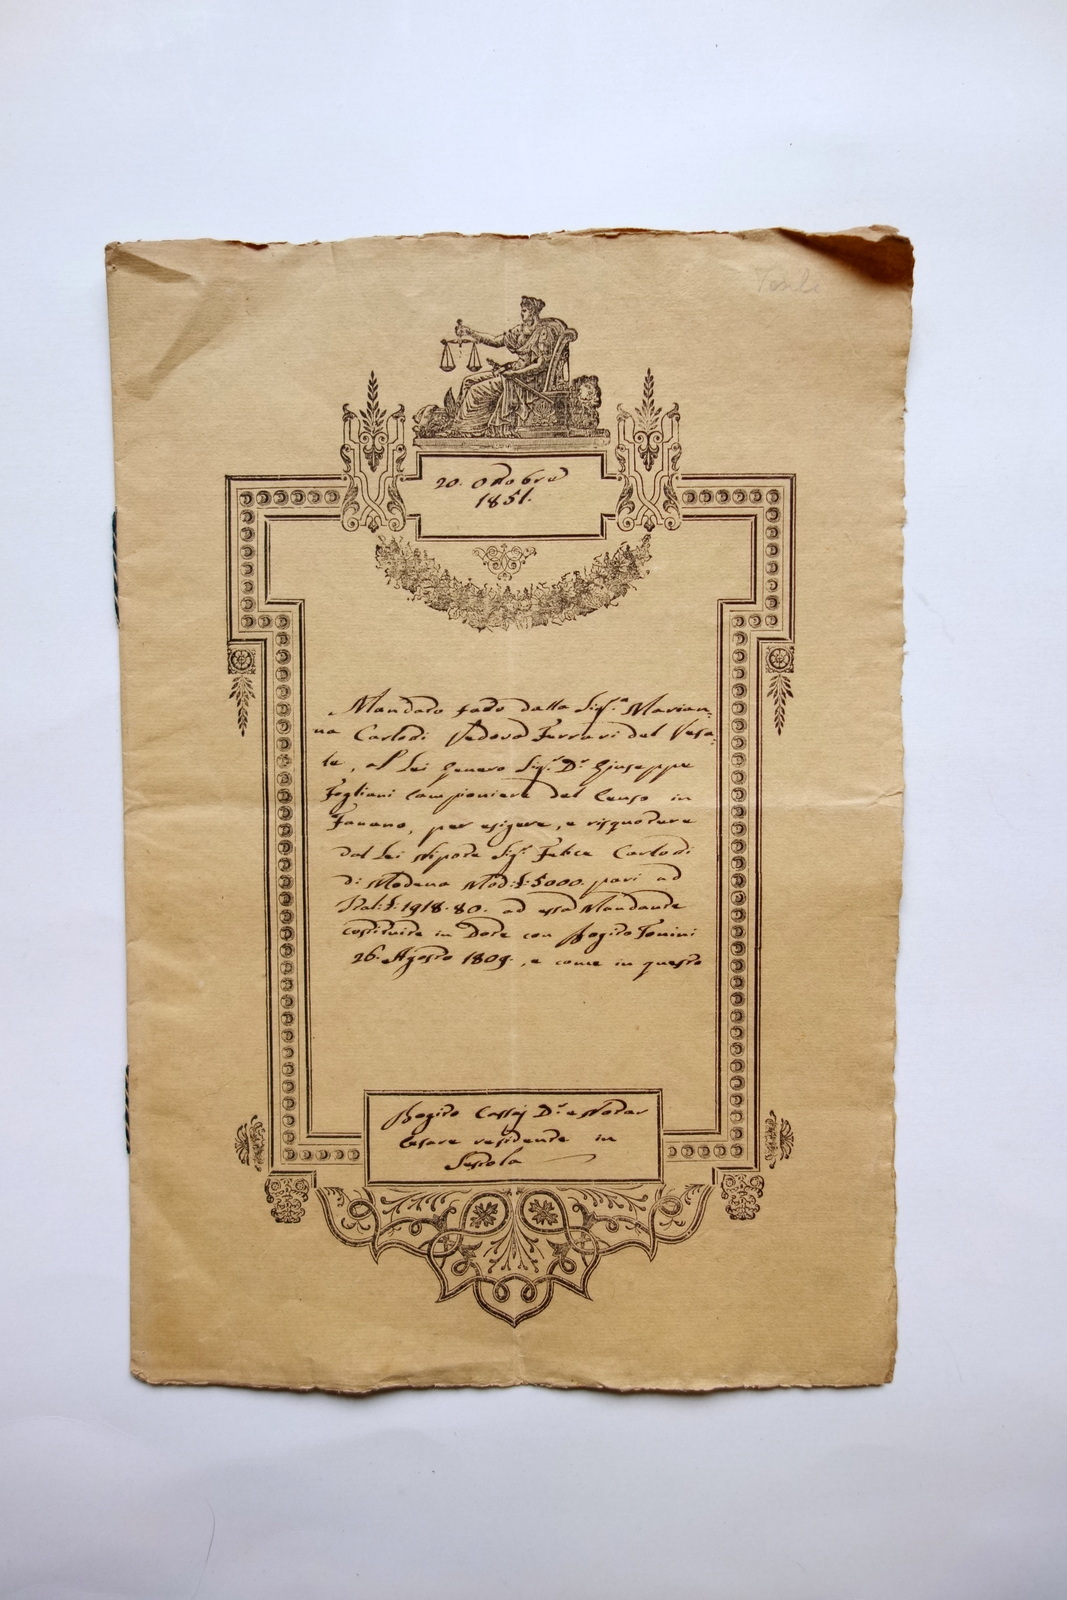 20. Ottobre
1851.
Mandato fatto dalla Sig.ª Marian-
na Carlotti Vedova Ferrari del Vesa-
le, al Lei Genero Sig.r D.r Giuseppe
Fogliani Campioniere del Censo in
Fanano, per esigere, e risquotere
dal Lei Nipote Sig.r Felice Carlotti
di Modena Mod: £: 5000. pari ad
Ital: £. 1918. 80. ad essa Mandante
costituite in Dote con Rogito Tonini
26. Agosto 1809., e come in questo
Rogito D.r e Notar
Cesare residente in
Sestola